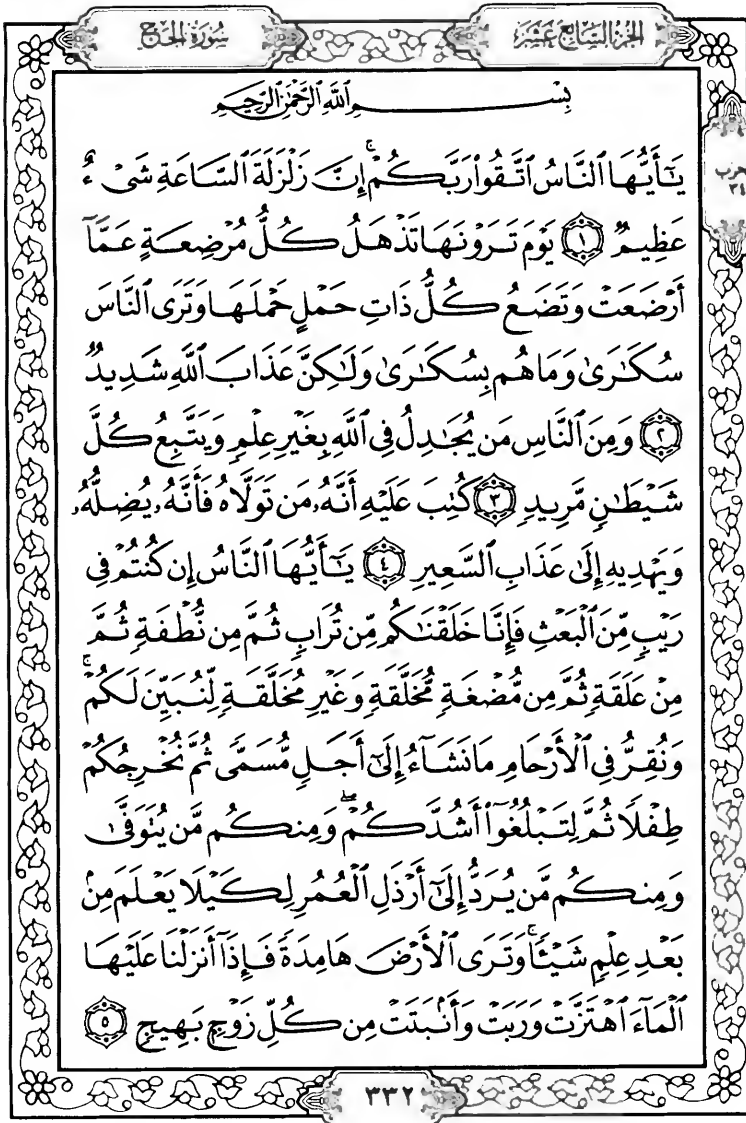 الجزء السابع عشر
سورة الحج
حزب
٣٤
بِسْمِ ٱللَّهِ ٱلرَّحْمَٰنِ ٱلرَّحِيمِ
يَٰٓأَيُّهَا ٱلنَّاسُ ٱتَّقُوا۟ رَبَّكُمْ ۚ إِنَّ زَلْزَلَةَ ٱلسَّاعَةِ شَىْءٌ
عَظِيمٌ ﴿١﴾ يَوْمَ تَرَوْنَهَا تَذْهَلُ كُلُّ مُرْضِعَةٍ عَمَّآ
أَرْضَعَتْ وَتَضَعُ كُلُّ ذَاتِ حَمْلٍ حَمْلَهَا وَتَرَى ٱلنَّاسَ
سُكَٰرَىٰ وَمَا هُم بِسُكَٰرَىٰ وَلَٰكِنَّ عَذَابَ ٱللَّهِ شَدِيدٌ
﴿٢﴾ وَمِنَ ٱلنَّاسِ مَن يُجَٰدِلُ فِى ٱللَّهِ بِغَيْرِ عِلْمٍ وَيَتَّبِعُ كُلَّ
شَيْطَٰنٍ مَّرِيدٍ ﴿٣﴾ كُتِبَ عَلَيْهِ أَنَّهُۥ مَن تَوَلَّاهُ فَأَنَّهُۥ يُضِلُّهُۥ
وَيَهْدِيهِ إِلَىٰ عَذَابِ ٱلسَّعِيرِ ﴿٤﴾ يَٰٓأَيُّهَا ٱلنَّاسُ إِن كُنتُمْ فِى
رَيْبٍ مِّنَ ٱلْبَعْثِ فَإِنَّا خَلَقْنَٰكُم مِّن تُرَابٍ ثُمَّ مِن نُّطْفَةٍ ثُمَّ
مِنْ عَلَقَةٍ ثُمَّ مِن مُّضْغَةٍ مُّخَلَّقَةٍ وَغَيْرِ مُخَلَّقَةٍ لِّنُبَيِّنَ لَكُمْ ۚ
وَنُقِرُّ فِى ٱلْأَرْحَامِ مَا نَشَآءُ إِلَىٰٓ أَجَلٍ مُّسَمًّى ثُمَّ نُخْرِجُكُمْ
طِفْلًا ثُمَّ لِتَبْلُغُوٓا۟ أَشُدَّكُمْ ۖ وَمِنكُم مَّن يُتَوَفَّىٰ
وَمِنكُم مَّن يُرَدُّ إِلَىٰٓ أَرْذَلِ ٱلْعُمُرِ لِكَيْلَا يَعْلَمَ مِنۢ
بَعْدِ عِلْمٍ شَيْـًٔا ۚ وَتَرَى ٱلْأَرْضَ هَامِدَةً فَإِذَآ أَنزَلْنَا عَلَيْهَا
ٱلْمَآءَ ٱهْتَزَّتْ وَرَبَتْ وَأَنۢبَتَتْ مِن كُلِّ زَوْجٍۭ بَهِيجٍ ﴿٥﴾
٣٣٢